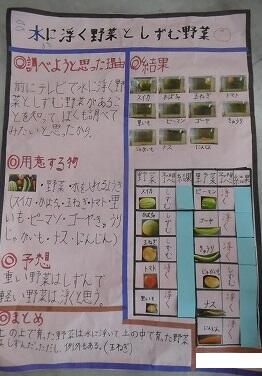 水に浮く野菜としずむ野菜
◎調べようと思った理由
前にテレビで水に浮く野
菜としずむ野菜があるこ
とを知って、ぼくも調べて
みたいと思ったから。
◎用意する物
・野菜・水を入れるようき
(スイカ・かぼちゃ・玉ねぎ・トマト・里
いも・ピーマン・ゴーヤ・きゅうり
じゃがいも・ナス・にんじん)
◎予想
重い野菜はしずんで
軽い野菜は浮くと思う。
◎まとめ
土の上で育った野菜は水に浮いて土の中で育った野菜
はしずんだ。ただし、例外もある。(玉ねぎ)
◎結果
スイカ かぼちゃ 玉ねぎ トマト
里いも ピーマン ゴーヤ きゅうり
じゃがいも ナス にんじん
野菜 予想 結果 野菜 予想 結果
スイカ ピーマン
かぼちゃ ゴーヤ
玉ねぎ きゅうり
トマト じゃがいも
里いも ナス
にんじん